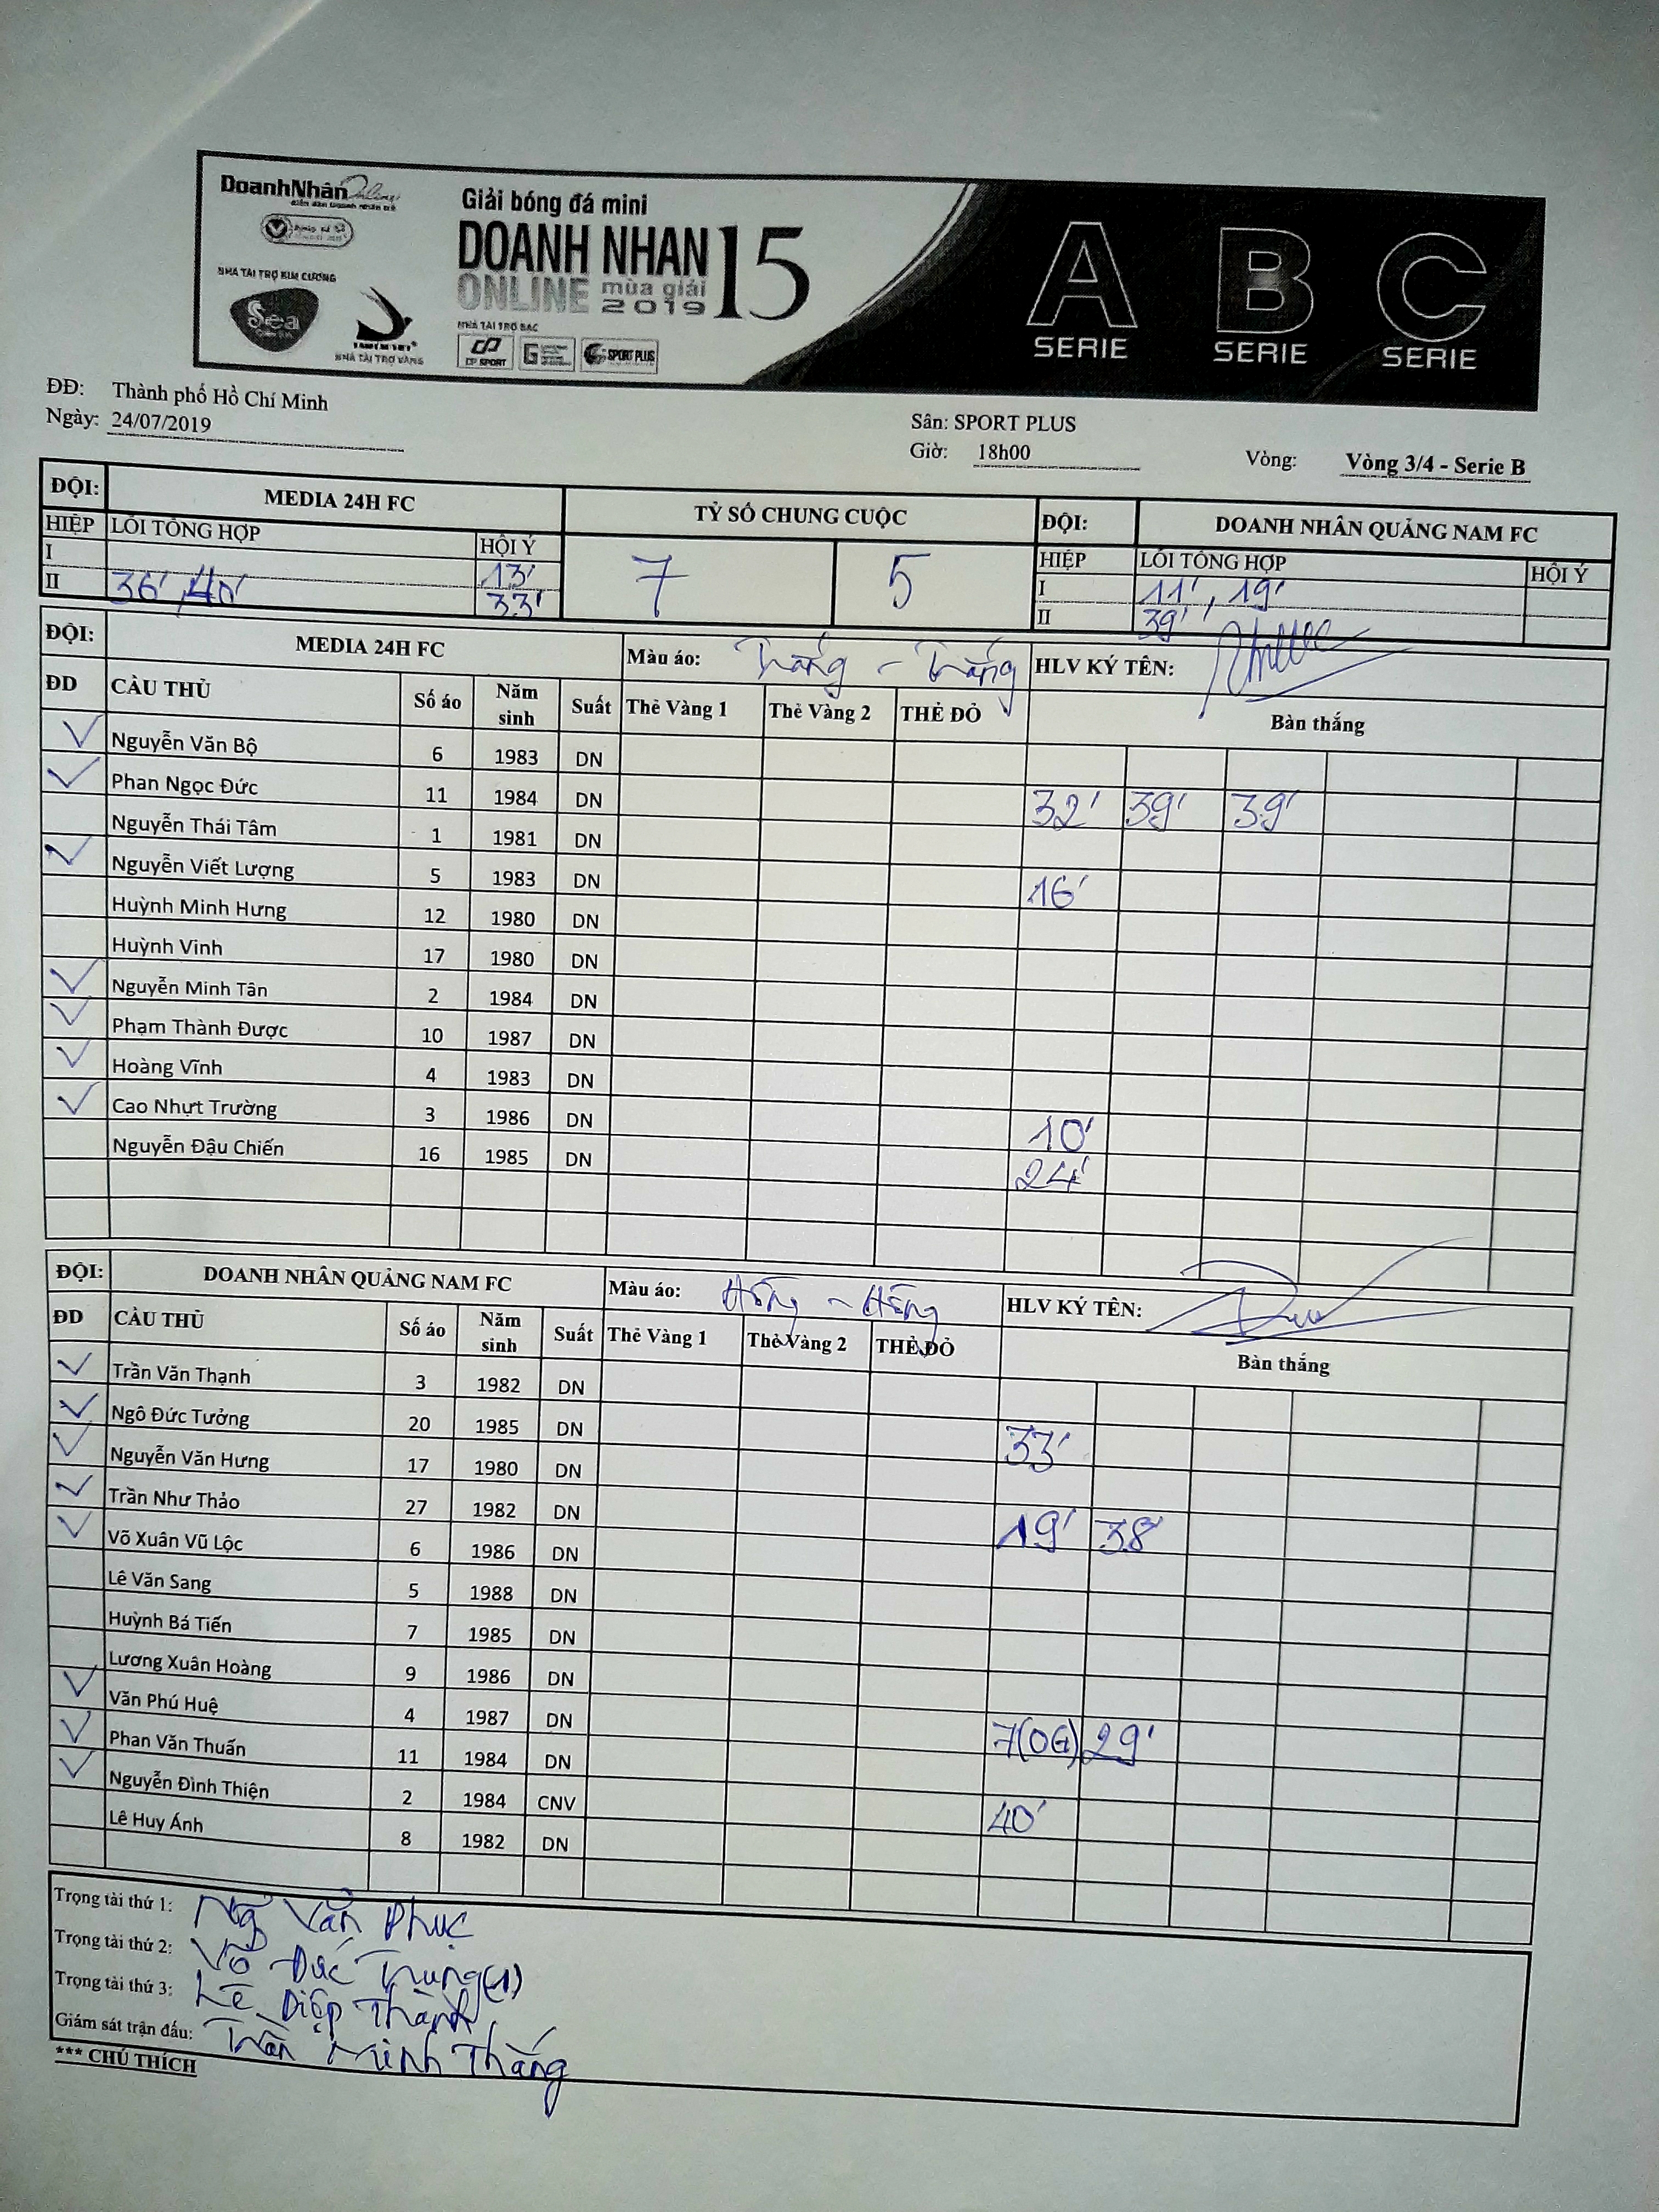 DoanhNhân Online
Giải bóng đá mini
DOANH NHAN 15
ONLINE mùa giải
2019
NHÀ TÀI TRỢ KIM CƯƠNG
Sea
NHÀ TÀI TRỢ VÀNG
NHÀ TÀI TRỢ BẠC
CP SPORT
SPORT PLUS
A B C
SERIE SERIE SERIE
ĐĐ: Thành phố Hồ Chí Minh
Ngày: 24/07/2019
Sân: SPORT PLUS
Giờ: 18h00 Vòng: Vòng 3/4 - Serie B
ĐỘI: MEDIA 24H FC TỶ SỐ CHUNG CUỘC ĐỘI: DOANH NHÂN QUẢNG NAM FC
HIỆP LỖI TỔNG HỢP HỘI Ý 7 5 HIỆP LỖI TỔNG HỢP HỘI Ý
I 13' I 11', 19'
II 36', 40' 33' II 39'
ĐỘI: MEDIA 24H FC Màu áo: Trắng - Trắng HLV KÝ TÊN:
ĐD CẦU THỦ Số áo Năm sinh Suất Thẻ Vàng 1 Thẻ Vàng 2 THẺ ĐỎ Bàn thắng
✓ Nguyễn Văn Bộ 6 1983 DN
✓ Phan Ngọc Đức 11 1984 DN 32' 39' 39'
Nguyễn Thái Tâm 1 1981 DN
✓ Nguyễn Viết Lượng 5 1983 DN 16'
Huỳnh Minh Hưng 12 1980 DN
Huỳnh Vinh 17 1980 DN
✓ Nguyễn Minh Tân 2 1984 DN
✓ Phạm Thành Được 10 1987 DN
✓ Hoàng Vĩnh 4 1983 DN
✓ Cao Nhựt Trường 3 1986 DN 10'
Nguyễn Đậu Chiến 16 1985 DN 24'
ĐỘI: DOANH NHÂN QUẢNG NAM FC Màu áo: Hồng - Hồng HLV KÝ TÊN:
ĐD CẦU THỦ Số áo Năm sinh Suất Thẻ Vàng 1 Thẻ Vàng 2 THẺ ĐỎ Bàn thắng
✓ Trần Văn Thạnh 3 1982 DN
✓ Ngô Đức Tưởng 20 1985 DN 33'
✓ Nguyễn Văn Hưng 17 1980 DN
✓ Trần Như Thảo 27 1982 DN 19' 38'
✓ Võ Xuân Vũ Lộc 6 1986 DN
Lê Văn Sang 5 1988 DN
Huỳnh Bá Tiến 7 1985 DN
Lương Xuân Hoàng 9 1986 DN
✓ Văn Phú Huệ 4 1987 DN 7(OG) 29'
✓ Phan Văn Thuấn 11 1984 DN
✓ Nguyễn Đình Thiện 2 1984 CNV 40'
Lê Huy Ánh 8 1982 DN
Trọng tài thứ 1: Ng Văn Phục
Trọng tài thứ 2: Võ Đức Trung(1)
Trọng tài thứ 3: Lê Diệp Thành
Giám sát trận đấu: Trần Minh Thắng
*** CHÚ THÍCH